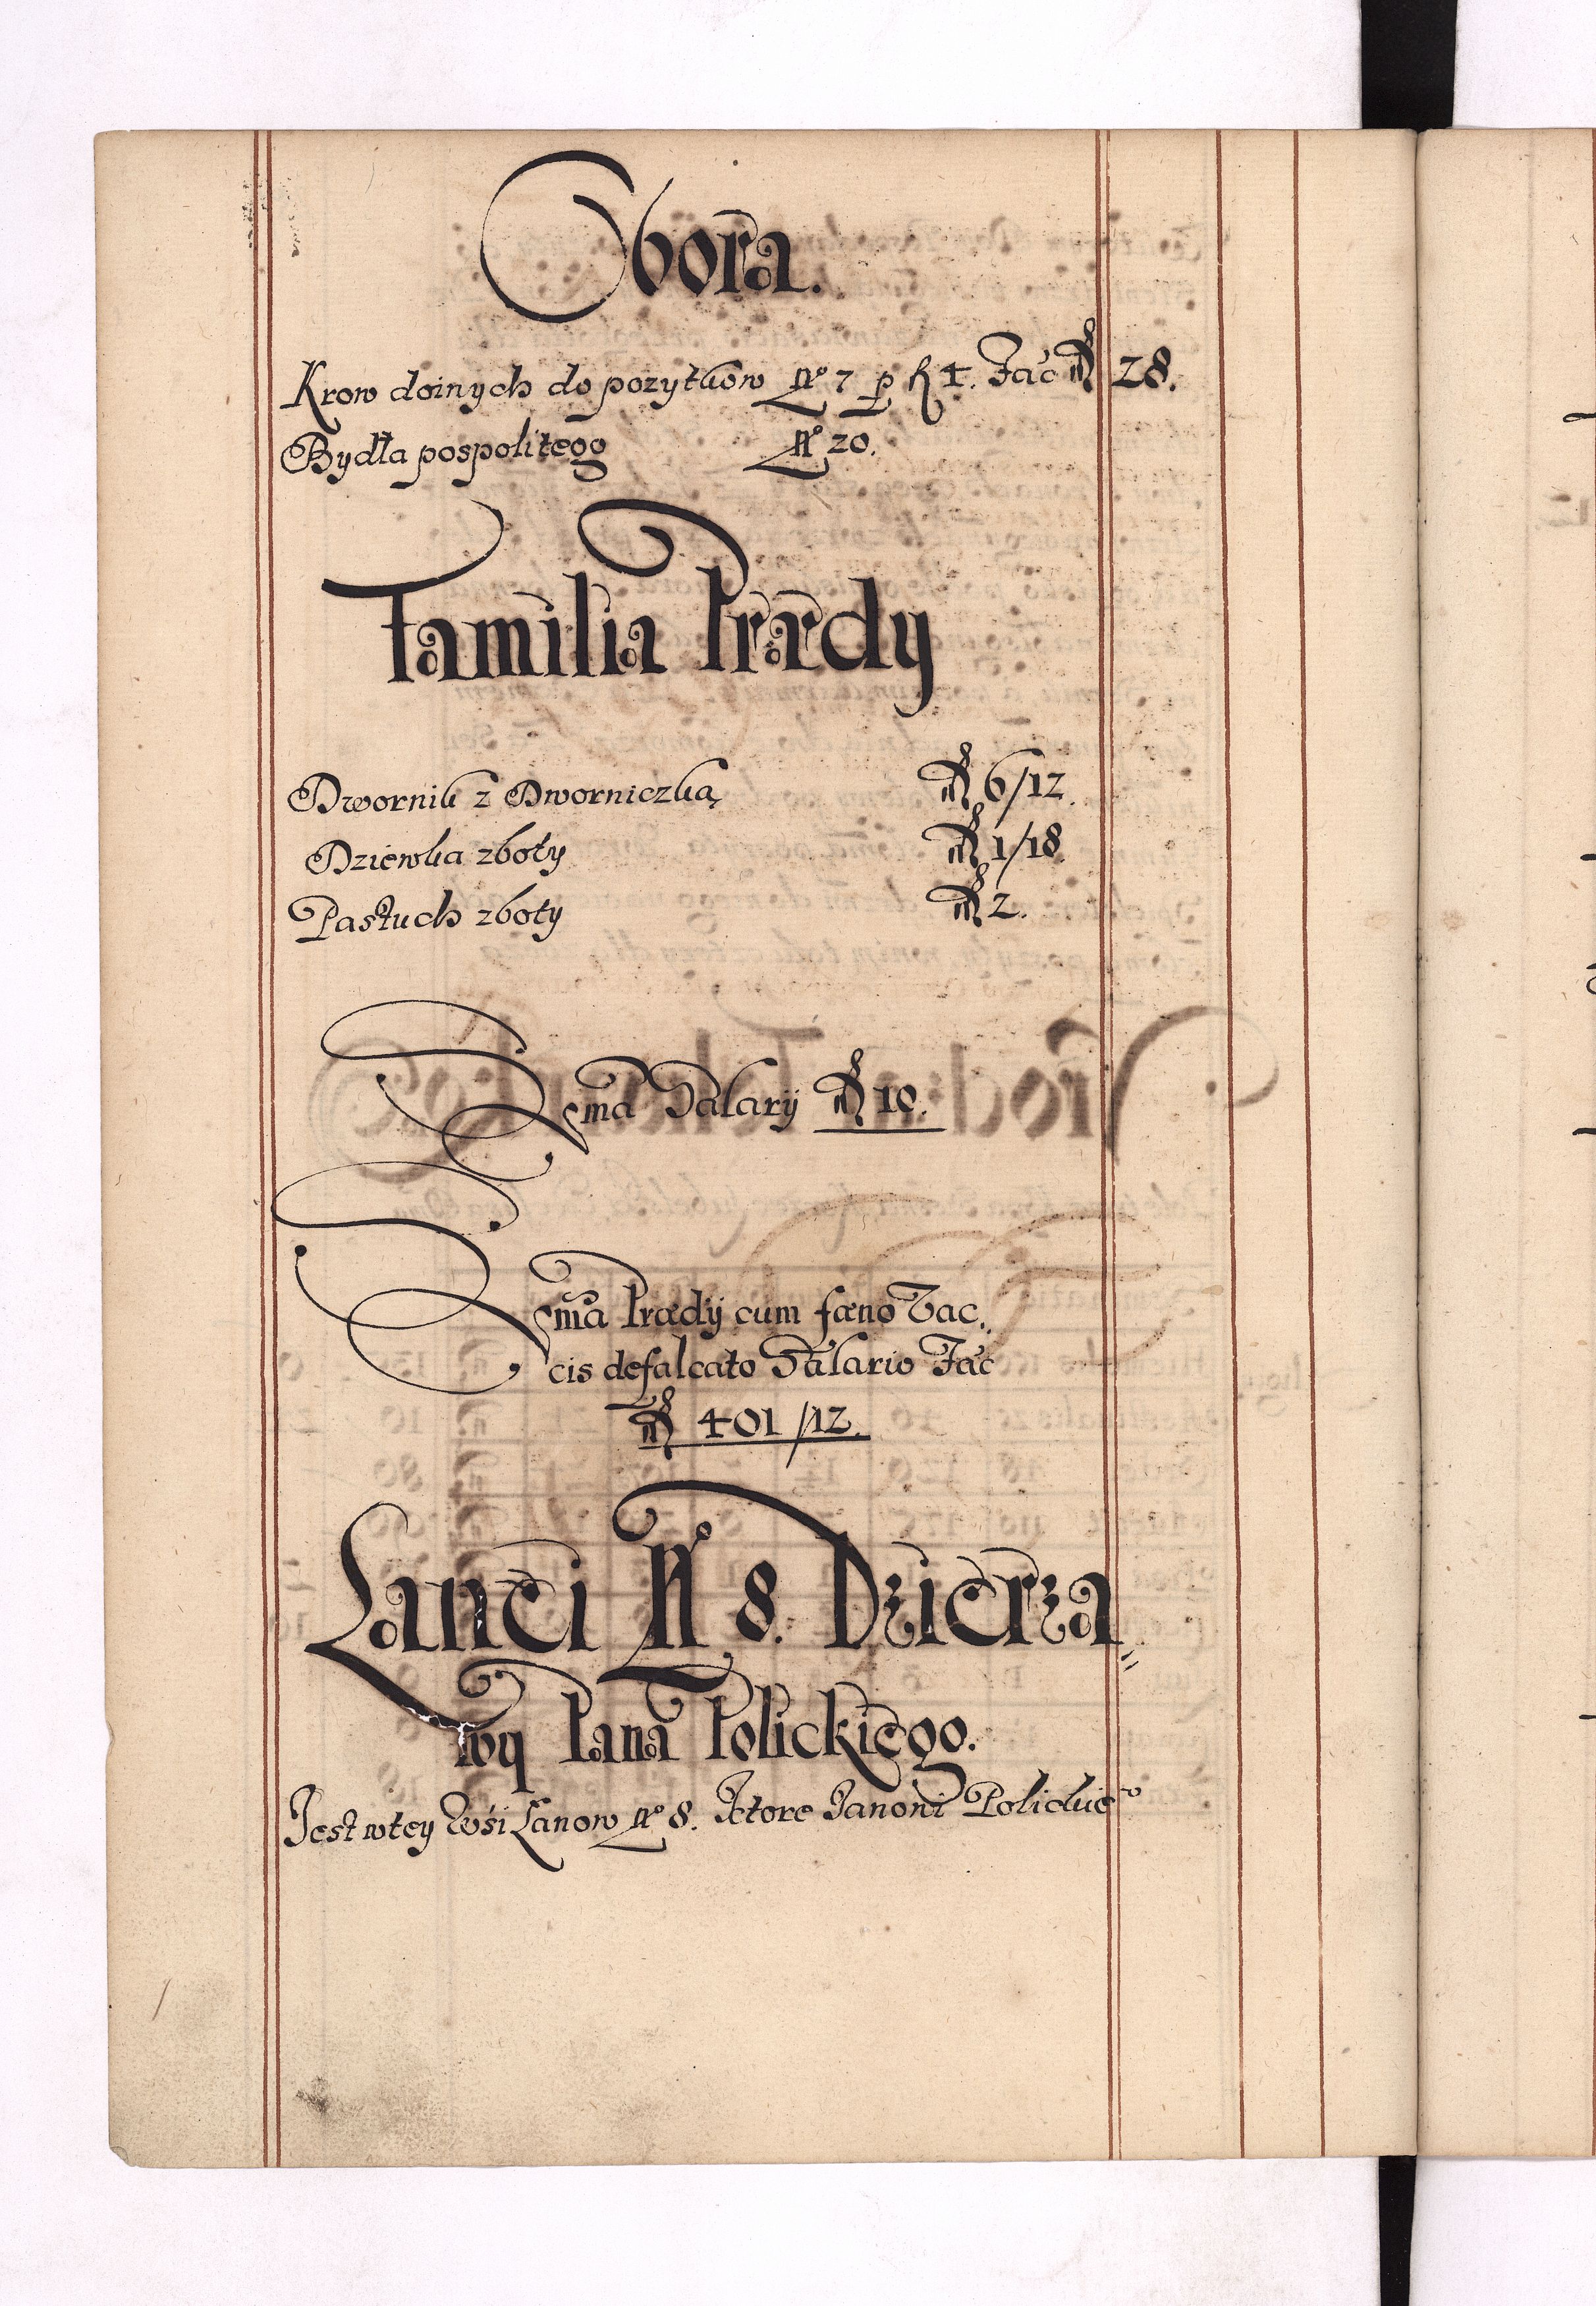 Obora.
Krow doinych do pozytkow No 7 p fl 4. Fac fl 28.
Bydła pospolitego No 20.
Familia Prædy
Dwornik z Dworniczką fl 6/12.
Dziewka zboty fl 1/18.
Pastuch zboty fl 2.
Suma Salarij fl 10.
Suma Prædij cum fæno Fac„
cis defalcato Salario Fac
fl 401/12.
Lanei No 8. Dzierza„
wy Pana Polickiego.
Jest wtey Wśi Łanow No 8. Ktore Janoni Polickie°